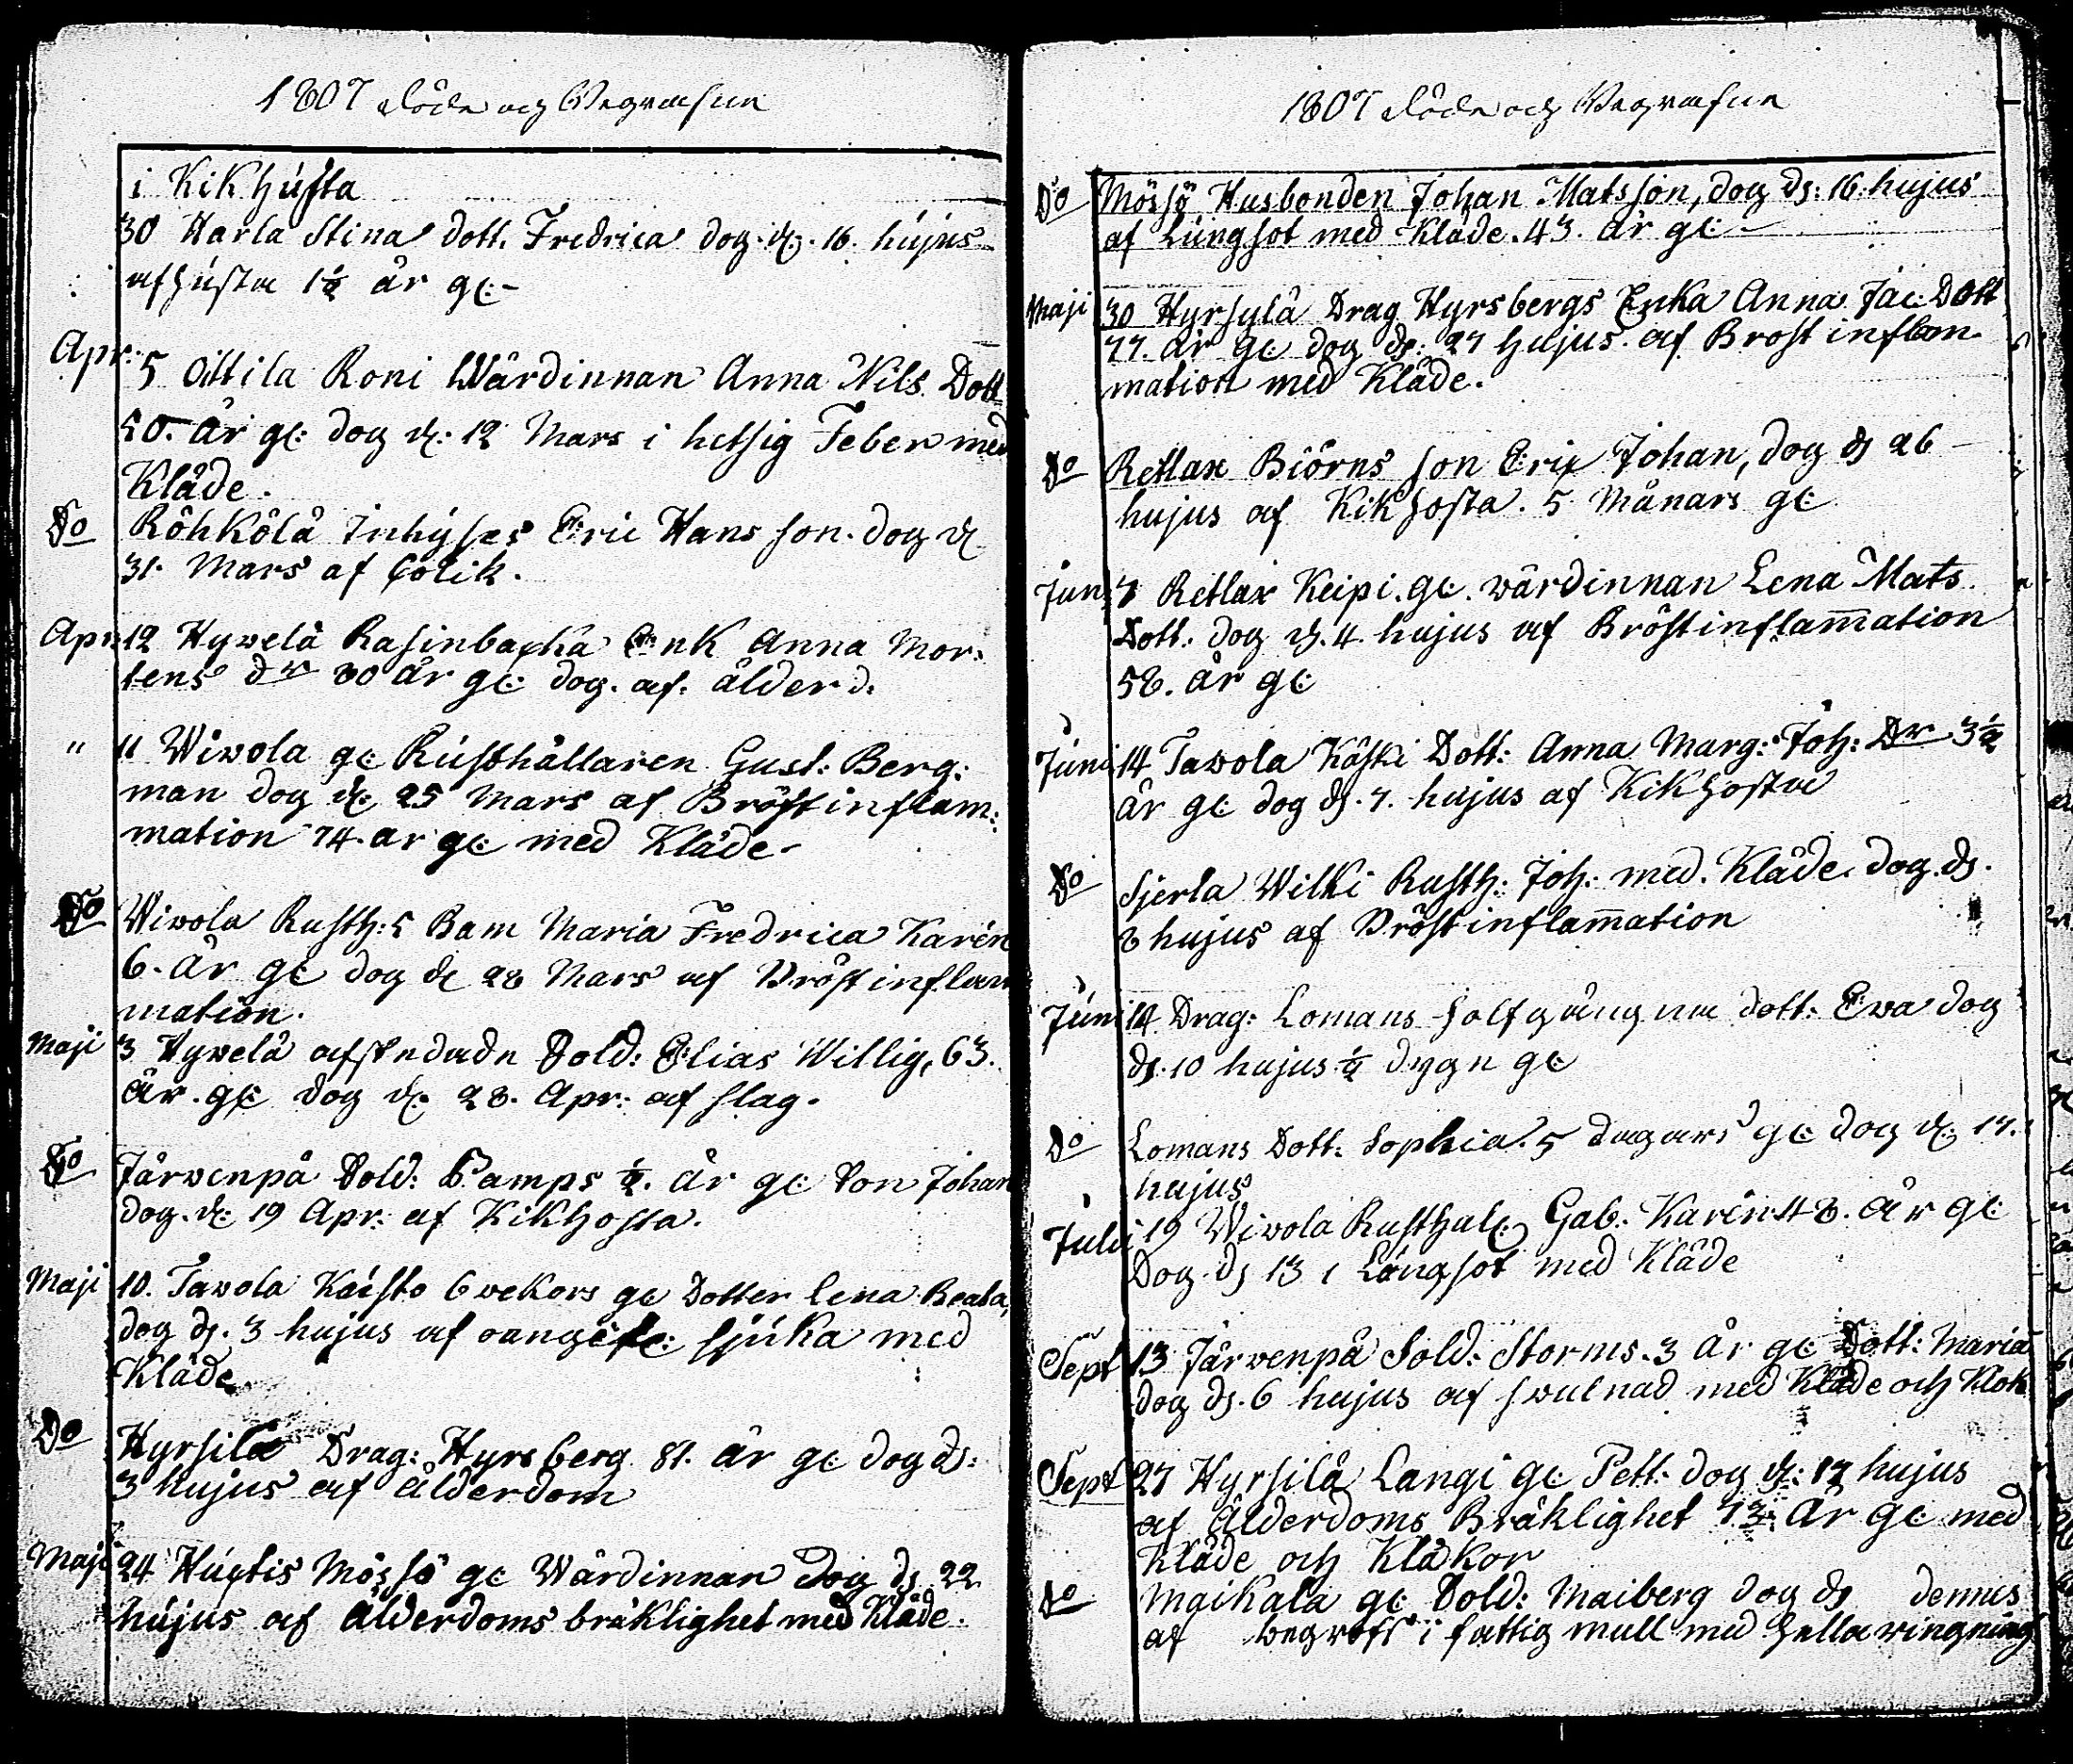 1807 Döde och Begrafne
i Kikhústa
30 Harla Stina dott. Fredrica dog. d. 16. hújus
af hústa 1½ år gl:-
Apr: 5 Oittila Roni Wärdinnan Anna Nils Dott
50. år gl: dog d: 12 Mars i hetsig Feber med
Kläde.
Do Röhkölä Inhyses Eric Hans son. dog d.
31. Mars af Colik.
Apr: 12 Hyvelä Rasinbacka Enk Anna Mor:
tens dr 80 år gl: dog. af. ålderd.
" 11 Wivola gl Rústhållaren Gust: Berg:
man dog d: 25 Mars af Bröstinflam:
mation 74. år gl med Kläde-
Do Wivola Rusth: s Barn Maria Fredrica Karén
6. år gl dog d 28 Mars af Bröstinflam
mation.
Maji 3 Hyvelä afskedade Sold: Elias Willig, 63.
år. gl: dog d. 28. Apr: af slag.
Do Järvenpä Sold: Pamps ½. år gl Son Johan
dog. d: 19 Apr: af Kikhosta.
Maji 10. Tavola Kaisto 6 vekors gl Dotter Lena Beata,
dog d. 3 hujus af sjúka med
Kläde.
Do Hyrsilä Drag: Hyrsberg 81. år gl: dog d:
3 hujus af Ålderdom
Maji 24 Húhtis Mössö gl Wärdinnan Dog d. 22
hújus af Ålderdoms bräklighet med Kläde.
1807 Döde och Begrafne
Do Mössö Husbonden Johan Matsson, dog d: 16. hujus
af Lúngsot med Kläde. 43. år gl:-
Maji 30 Hyrsylä Drag Hyrsbergs Enka Anna Jac: Dott
77. år gl dog d: 27 hujus. af Brost inflam
mation med Kläde.
Do Retlax Biörns son Eric Johan, dog d 26 -
hujus af Kikhosta. 5 Månars gl
Juni 7 Retlax Keipi. gl. wärdinnan Lena Mats
Dott. dog d. 4 hujus af Bröstinflam̅ation
58. år gl
Júni 14 Tavola Köski Dott: Anna Marg: Joh: Dr 3½
år gl dog d. 7. hujus af Kikhosta
Do Sjerla Wilki Rusth: Joh: med. Kläde. dog. d.
8 hujus af Bröstinflam̅ation
Júni 14 Drag: Lomans halfgångna dott: Eva dog
d. 10 hujus ½ dygn gl
Do Lomans Dott: Sophia. 5 dagars gl: dog d. 17.
hujus
Julii 19 Wivola Rusthål: Gab: Karén 48. år gl
Dog. d 13 i Lúngsot med Kläde
Sept 13 Järvenpä Sold: Storms. 3 år gl Dott: Maria
dog d. 6 hujus af svulnad med Kläde och Klok
Sept 27 Hyrsilä Langi gl Pett: dog d: 17 hujus
af Ålderdoms Bräklighet 73 år gl med
Kläde och Kläkor
Do Maikala gl Sold: Maiberg dog d dennes
af begrofs i fattig mull med hella ringning